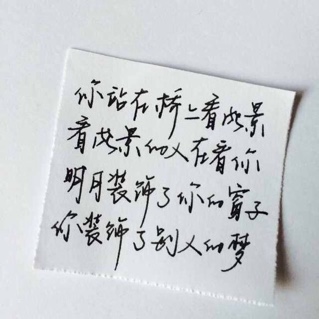 你站在桥上看此景
看此景的人在看你
明月装饰了你的窗子
你装饰了别人的梦